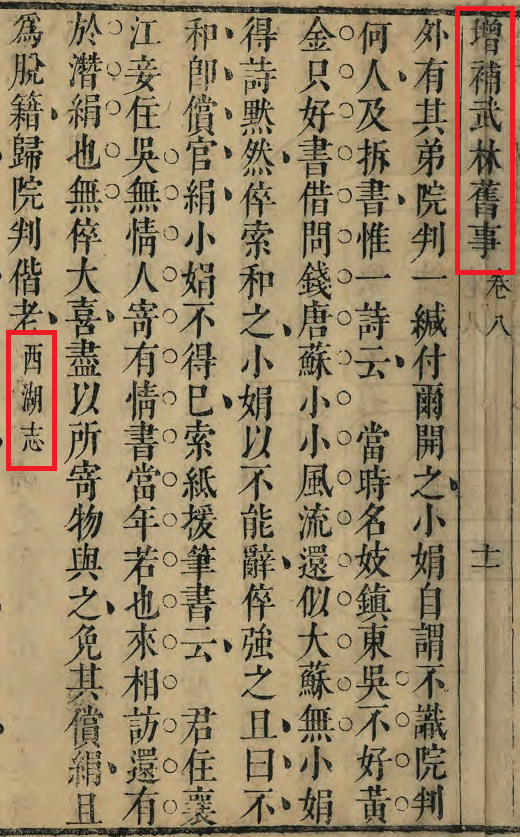 增補武林舊事 卷八 十一
外有其弟院判一緘付爾開之小娟自謂不識院判
何人及拆書惟一詩云 當時名妓鎮東吳不好黃
金只好書借問錢唐蘇小小風流還似大蘇無小娟
得詩默然倅索和之小娟以不能辭倅強之且曰不
和即償官絹小娟不得已索紙援筆書云 君住襄
江妾住吳無情人寄有情書當年若也來相訪還有
於潛絹也無倅大喜盡以所寄物與之免其償絹且
為脫籍歸院判偕老西湖志